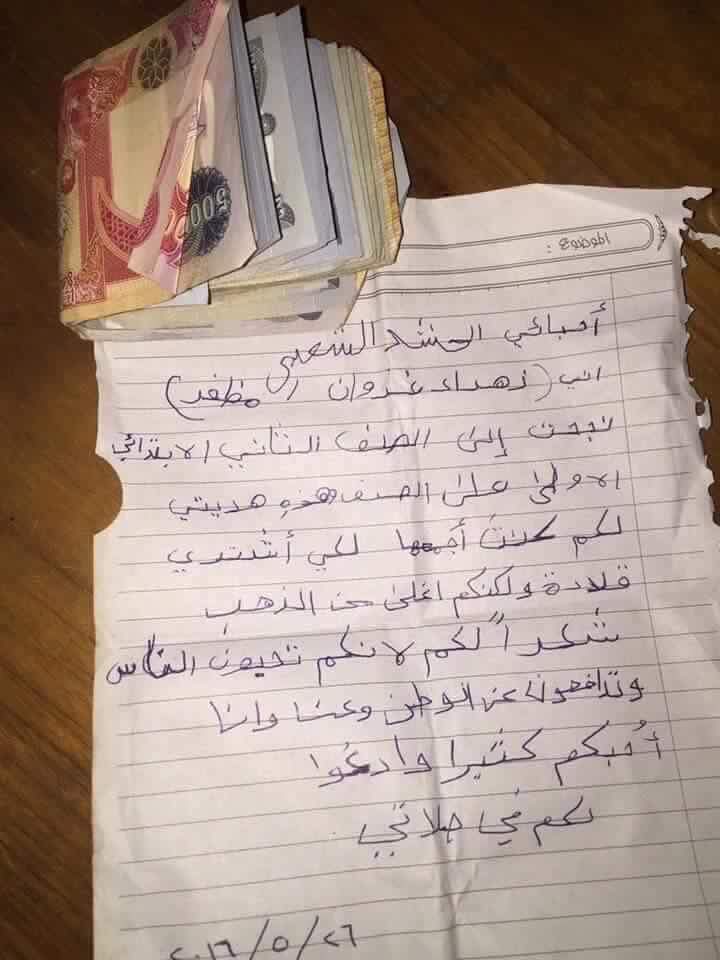 5000
الموضوع :
أحبائي الحشد الشعبي
اني (زهراء غزوان المظفر)
نجحت إلى الصف الثاني الابتدائي
الاولى على الصف وهذه هديتي
لكم كنت أجمعها لكي أشتري
قلادة ولكنكم اغلى من الذهب
شكراً لكم لانكم تحبون الناس
وتدافعون عن الوطن وعنا وانا
أُحبكم كثيرا وادعوا
لكم في صلاتي
٢٠١٦/٥/٢٦